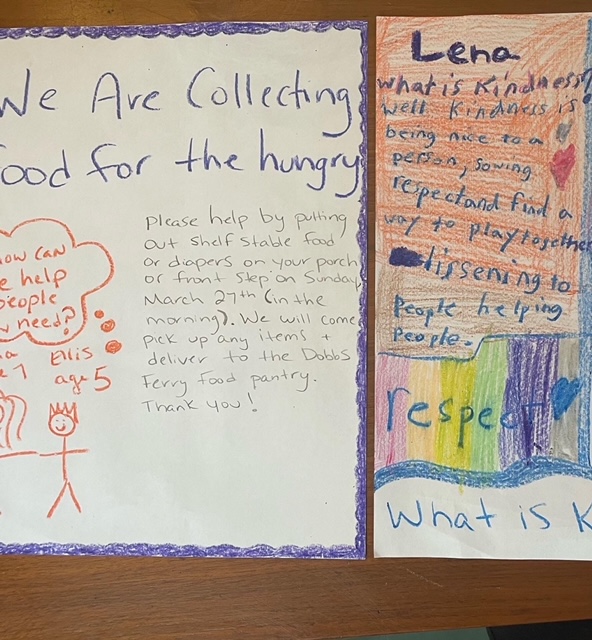 We Are Collecting
ood for the hungry
Please help by putting
out shelf stable food
or diapers on your porch
or front step on Sunday
March 27th (in the
morning). We will come
pick up any items +
deliver to the Dobbs
Ferry food pantry.
Thank you!
ow can
e help
people
need?
Ellis
age 5
Lena
What is Kindness?
Well Kindness is
being nice to a
person, sowing
respect and find a
way to play together
tissening to
People helping
People.
respect
What is K